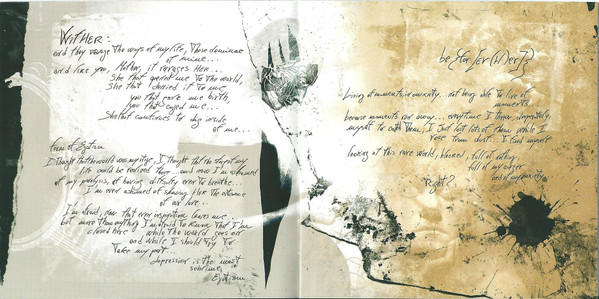 WITHER:
and they ravage the ways of my life, Those dominae
of mine...
and like you, Mother, it ravages Her...
She that opened me To The world,
She that denied it To me
you that gave me birth,
you that caged me...
She that continues to die inside
of me...
of Egotism
I thought that the world was my stage, I thought that the stage of my
life could be realised there... and now I'm ashamed
of my paralysis, of having difficulty even to breathe...
I'm even ashamed of the absence
of our love...
I'm afraid, now that even inspiration leaves me...
but more than anything I'm afraid to know that I'm
closed here, while the world goes on
and while I should try to
take my part...
depression is the most
sublime
Egotism
be {for[ev(H)er]}
Living of moments in anxiety... not being able to live of
moments
because moments run away... everytime I throw, desperately,
myself to catch them, I just lost lots of them while I
rose from dust. I find myself
looking at this rare world, blocked, full of
full of my anger
and of my anxiety
right?